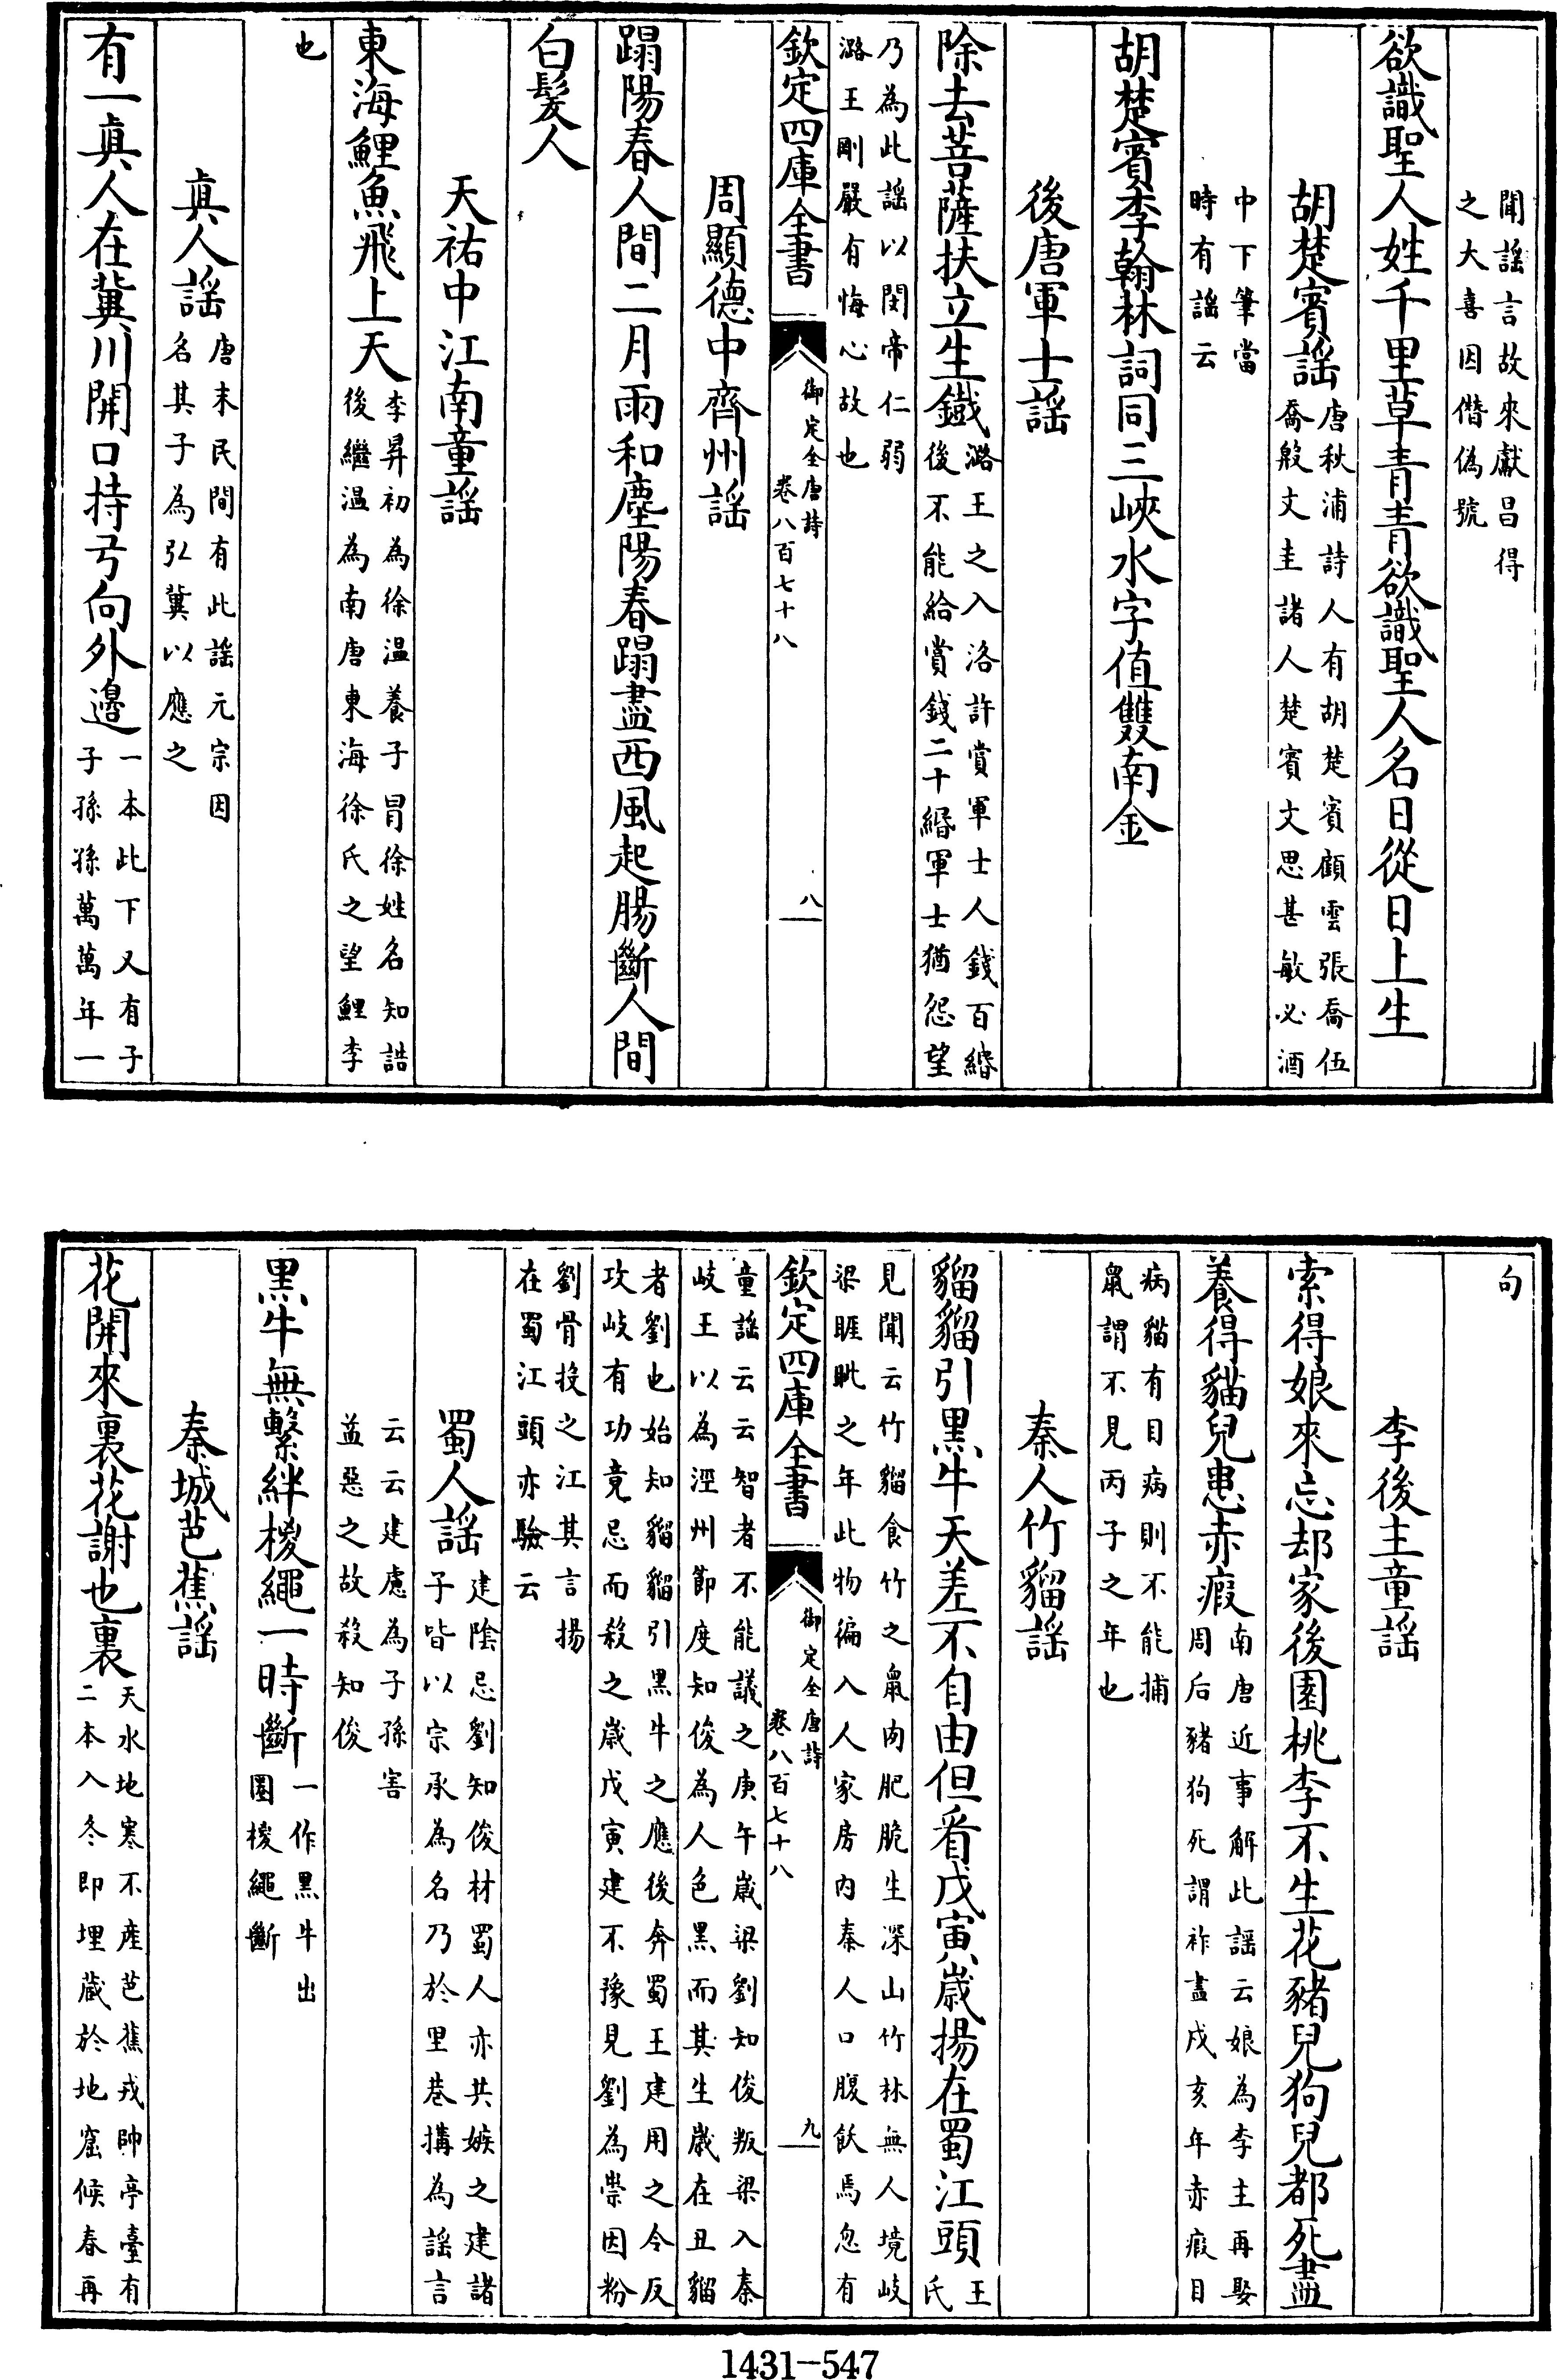 聞謡言故來獻昌得
之大喜因僣偽號
欲識聖人姓千里草青青欲識聖人名日從日上生
胡楚賓謡唐秋浦詩人有胡楚賓顧雲張喬伍
喬殷文圭諸人楚賓文思甚敏必酒
中下筆當
時有謡云
胡楚賓李翰林詞同三峽水字值雙南金
後唐軍士謡
除去菩薩扶立生鐵潞王之入洛許賞軍士人錢百緡
後不能給賞錢二十緡軍士猶怨望
乃為此謡以閔帝仁弱
潞王剛嚴有悔心故也
欽定四庫全書
御定全唐詩
卷八百七十八
八
周顯德中齊州謡
蹋陽春人間二月雨和塵陽春蹋盡西風起腸斷人間
白髮人
天祐中江南童謡
東海鯉魚飛上天李昇初為徐温養子冒徐姓名知誥
後繼温為南唐東海徐氏之望鯉李
也
真人謡唐末民間有此謡元宗因
名其子為弘冀以應之
有一真人在冀川開口持弓向外邊一本此下又有子
子孫孫萬萬年一
句
李後主童謡
索得娘來忘却家後園桃李不生花豬兒狗兒都死盡
養得貓兒患赤瘕南唐近事解此謡云娘為李主再娶
周后豬狗死謂祚盡戌亥年赤瘕目
病貓有目病則不能捕
䑕謂不見丙子之年也
秦人竹䶉謡
貓貓引黑牛天差不自由但看戊寅歲揚在蜀江頭王
氏
見聞云竹貓食竹之䑕肉肥脆生深山竹林無人境岐
梁睚眦之年此物徧入人家房内秦人口腹飫焉忽有
欽定四庫全書
御定全唐詩
卷八百七十八
九
童謡云云智者不能議之庚午嵗梁劉知俊叛梁入秦
岐王以為涇州節度知俊為人色黑而其生嵗在丑貓
者劉也始知貓貓引黑牛之應後奔蜀王建用之令反
攻岐有功竟忌而殺之嵗戊寅建不豫見劉為祟因粉
劉骨投之江其言揚
在蜀江頭亦驗云
蜀人謡建陰忌劉知俊材蜀人亦共嫉之建諸
子皆以宗承為名乃於里巷搆為謡言
云云建慮為子孫害
益惡之故殺知俊
黑牛無繫絆椶繩一時斷一作黑牛出
圈椶繩斷
秦城芭蕉謡
花開來裏花謝也裏天水地寒不產芭蕉戎帥亭臺有
二本入冬即埋藏於地窟候春再
1431—547